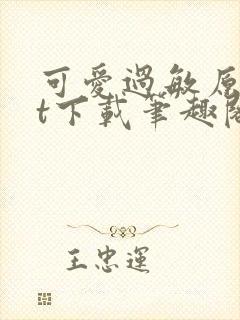 可愛過敏原
t下載筆趣閣
王忠運